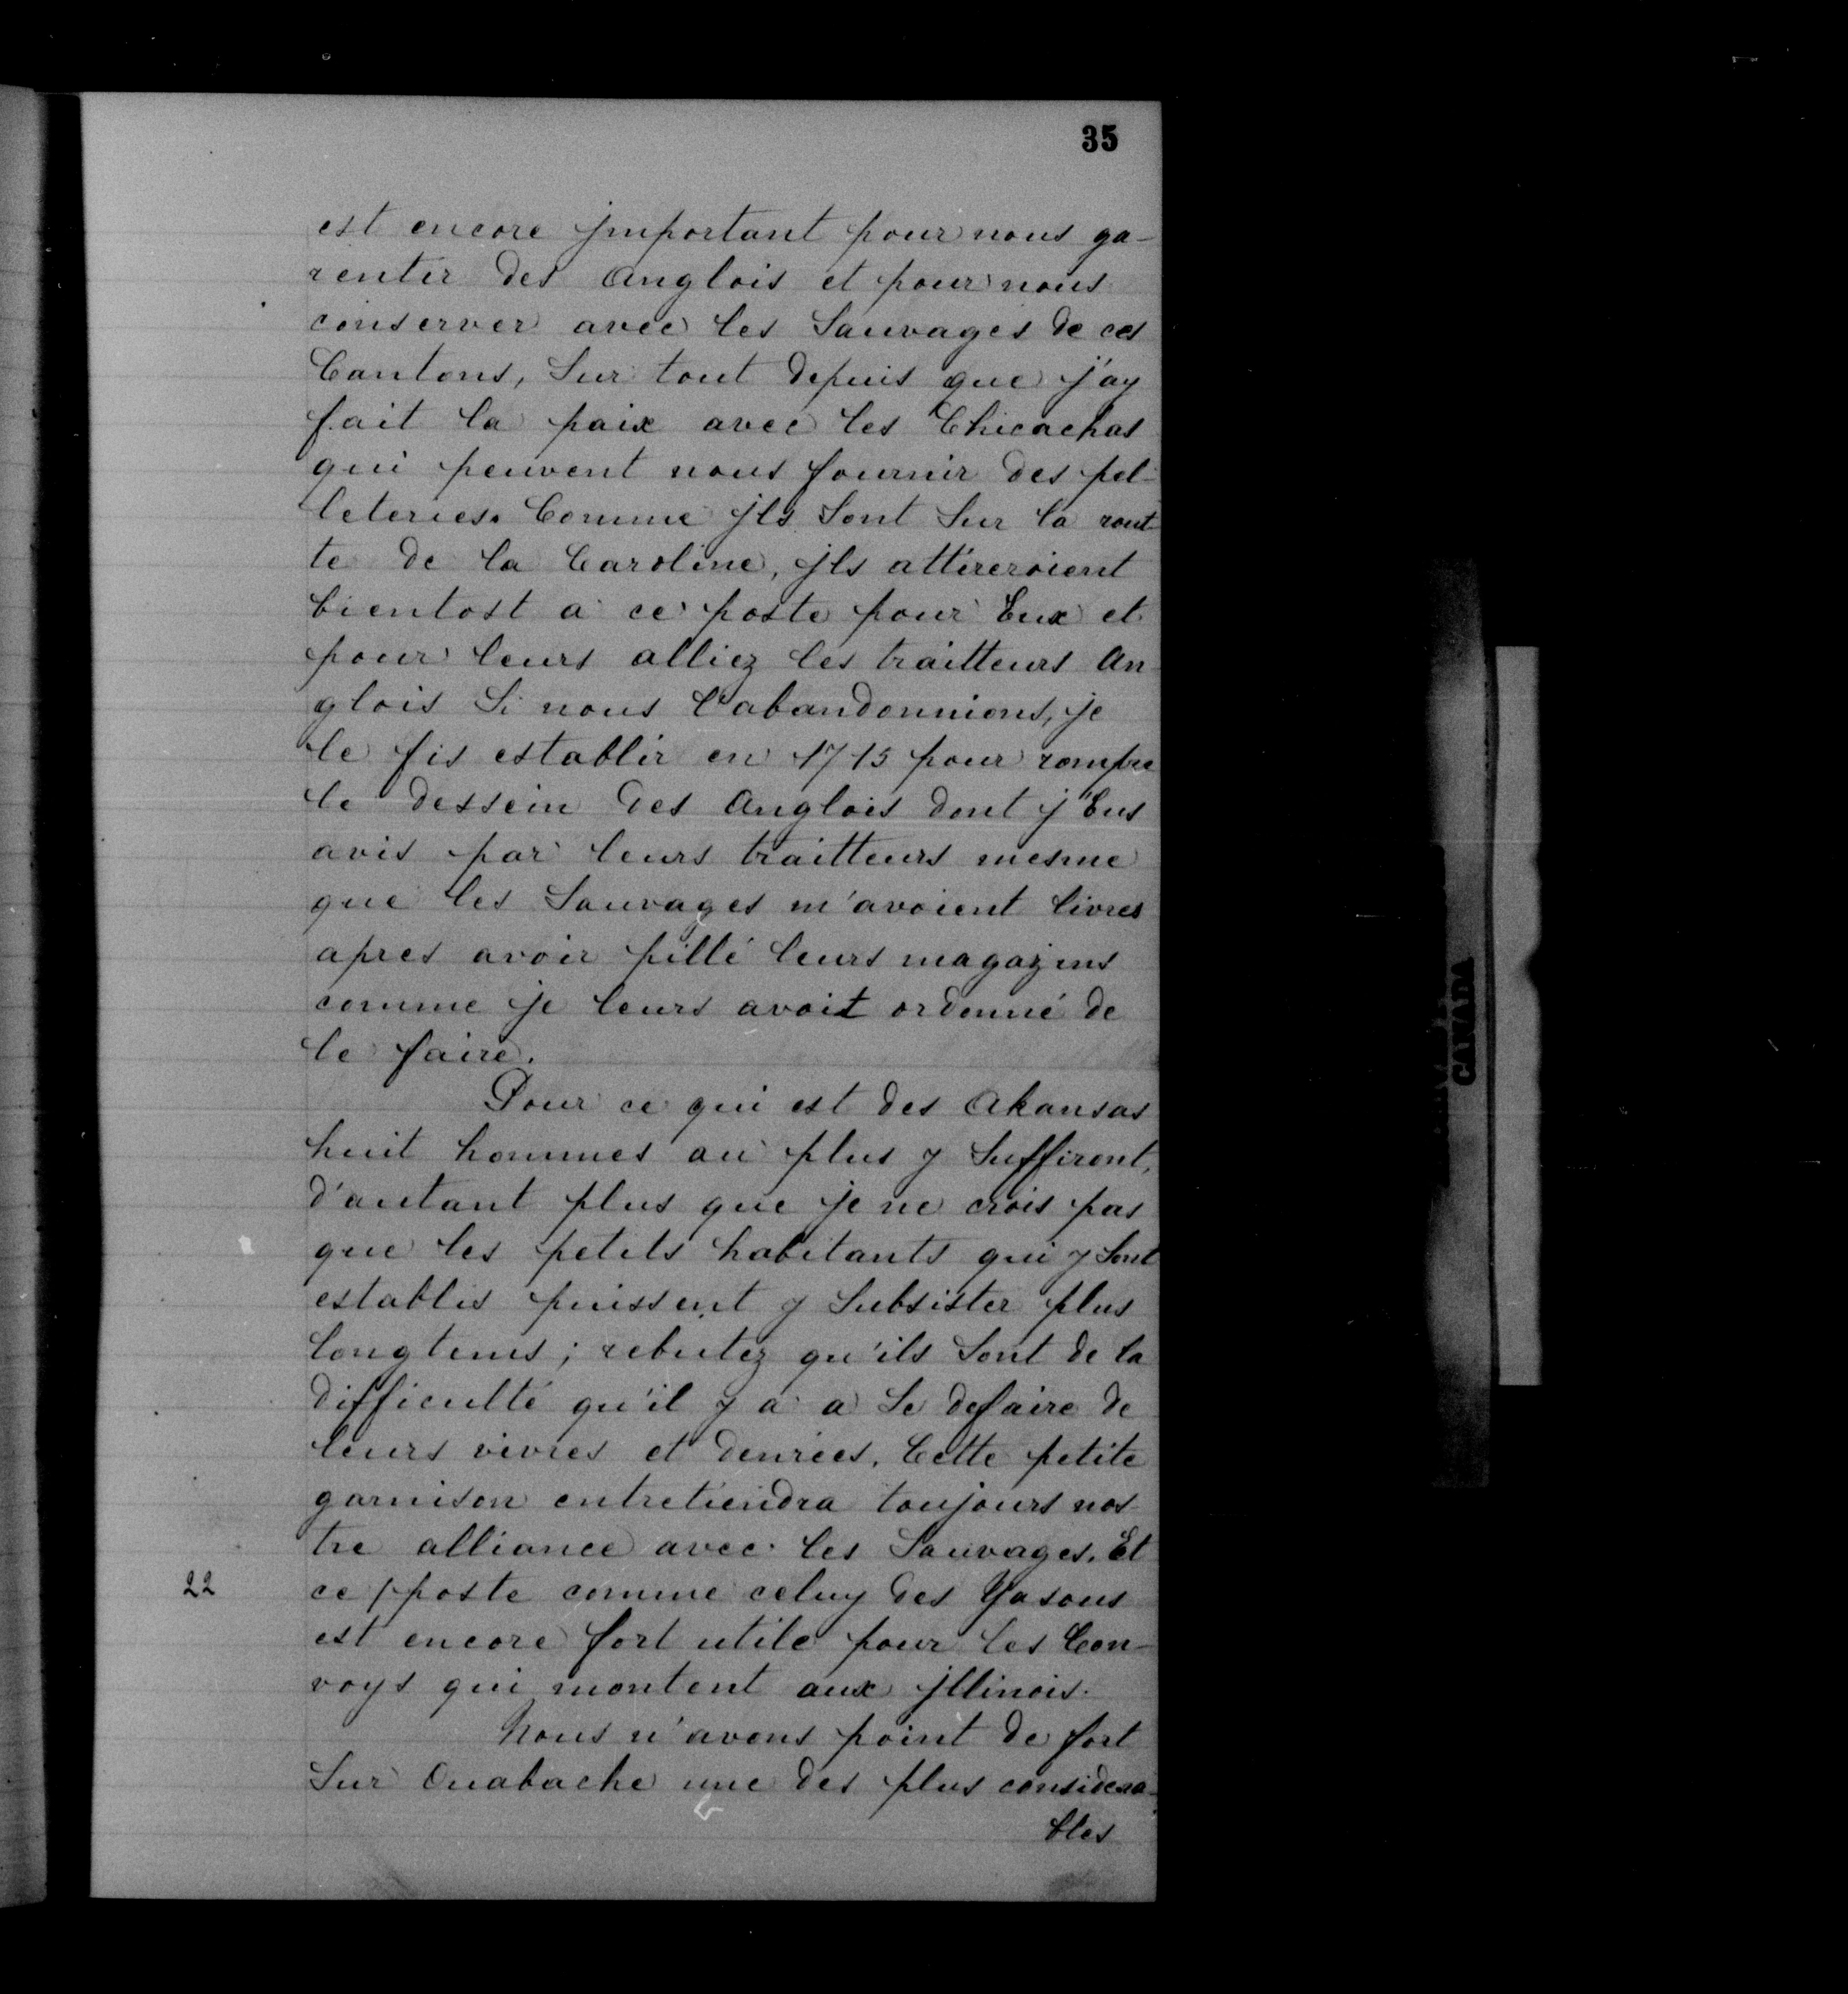 35
est encore jmportant pour nous ga-
rentir des Anglois et pour nous
conserver avec les Sauvages de ces
Cantons, Sur tout depuis que j'ay
fait la paix avec les Chicachas
qui peuvent nous fournir des pel-
leteries. Comme jls Sont Sur la rout-
te de la Caroline, jls attireroient
bientost a ce poste pour Eux et
pour leurs alliez les traitteurs An-
glois Si nous l'abandonnions, je
le fis establir en 1715 pour rompre
le dessein des Anglois dont j'Eus
avis par leurs traitteurs mesme
que les Sauvages m'avoient livres
apres avoir pillé leurs magazins
comme je leurs avoit ordonné de
le faire.
Pour ce qui est des Akansas
huit hommes au plus y Suffiront,
d'autant plus que je ne crois pas
que les petits habitants qui y Sont
establis puissent y Subsister plus
longtems; rebutez qu'ils Sont de la
difficulté qu'il y a a Se defaire de
leurs vivres et denrées. Cette petite
garnison entretiendra toujours nos-
tre alliance avec les Sauvages. Et
22 ce / poste comme celuy des Yasous
est encore fort utile pour les Con-
voys qui montent aux jllinois.
Nous n'avons point de fort
Sur Ouabache une des plus considera-
bles
CANADA